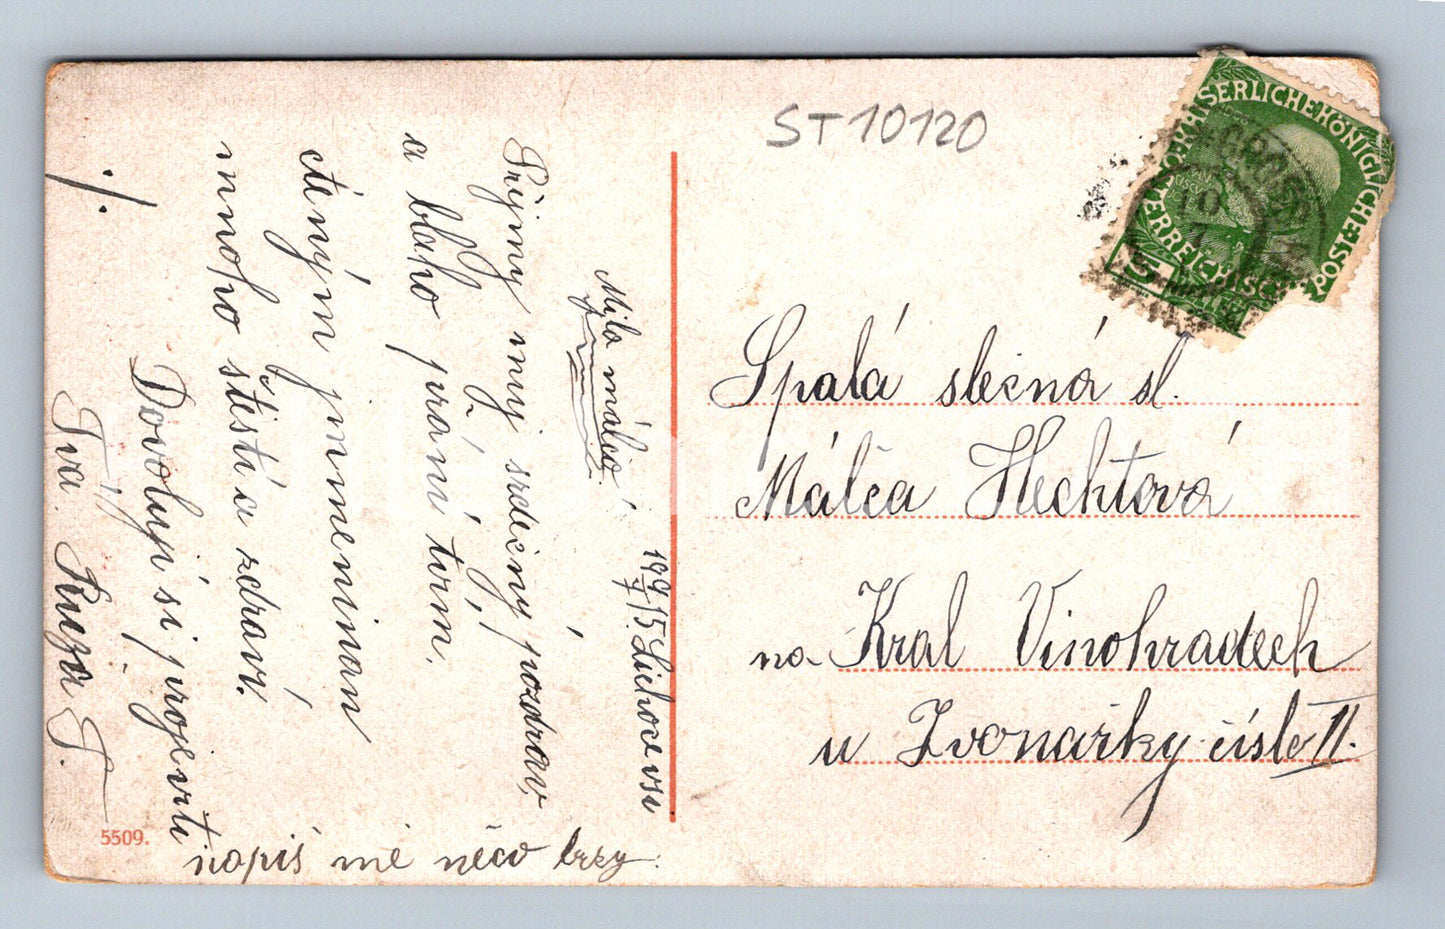 ST10120
KAISERLICHE KÖNIGLICHE
ÖSTERREICHISCHE
5
10
Spalá slečná sl.
Málča Hechtová
na Král Vinohradech
u Zvonařky čísle II.
19 9/7 15 Lichovsi
Milá málčo
Přijmy muj srdečný pozdrav,
a blaho přání tvm.
ctěným jmmeninám
mnoho štěstí a zdraví.
Dovoluji si projevrti
Tvá Růža T.
./.
napiš mě něco brzy.
5509.